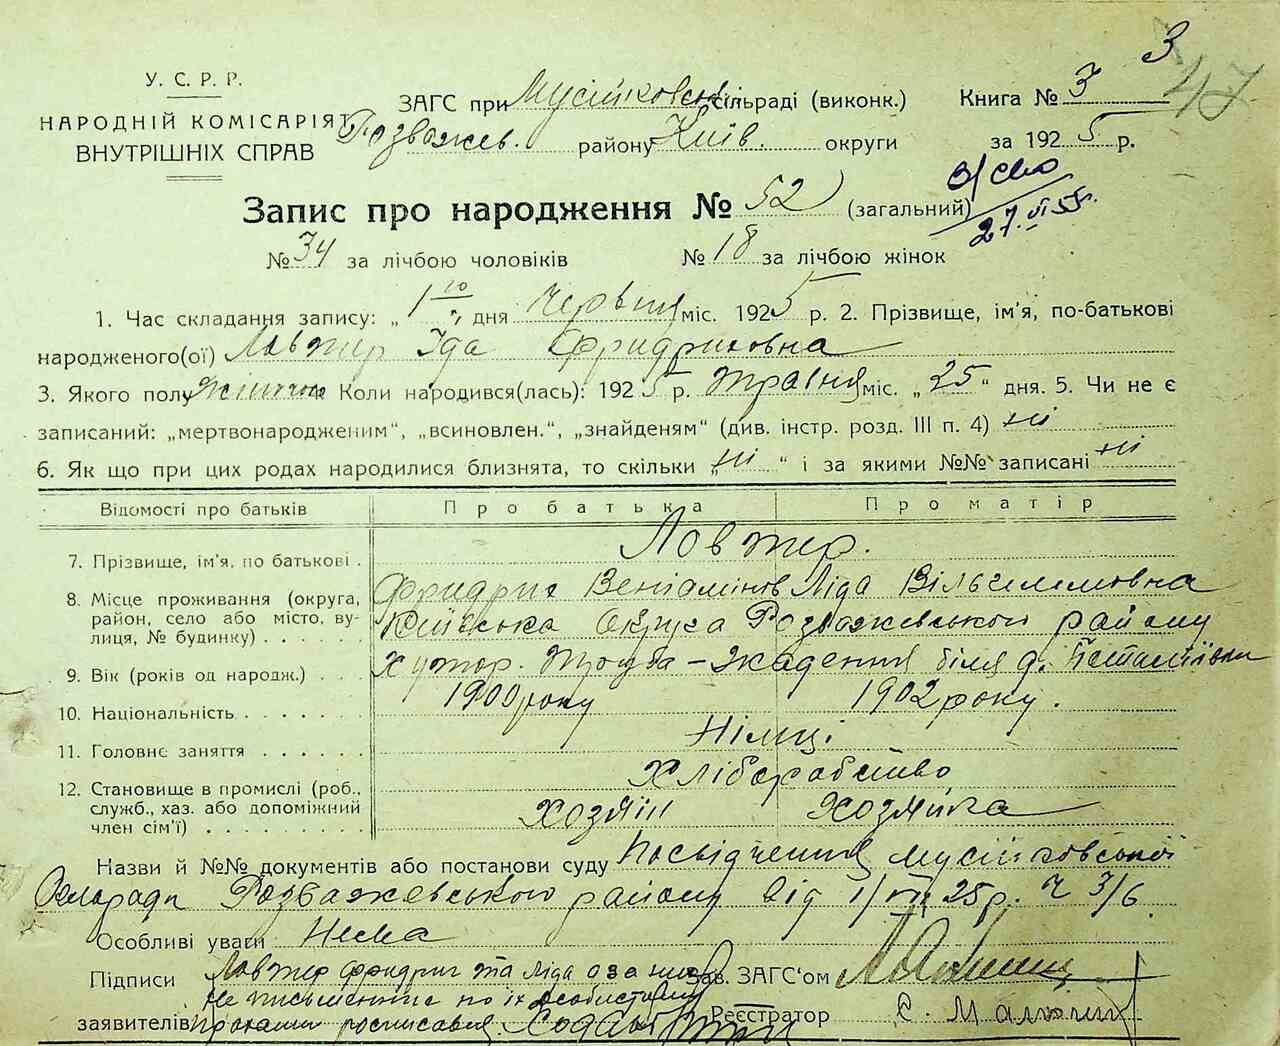 3
47
У. С. Р. Р.
НАРОДНІЙ КОМІСАРІЯТ
ВНУТРІШНІХ СПРАВ
ЗАГС при Мусійковськ. сільраді (виконк.)
Книга № 3
Розважев. району Київ. округи
за 1925 р.
Запис про народження № 52 (загальний)
27.VI 55р.
№ 34 за лічбою чоловіків № 18 за лічбою жінок
1. Час складання запису: „1го" дня Червня міс. 1925 р. 2. Прізвище, ім'я, по-батькові
народженого(ої) Ловтер Іда Фридриховна
3. Якого полу жіночо Коли народився(лась): 1925 р. травня міс. „25" дня. 5. Чи не є
записаний: „мертвонародженим", „всиновлен.", „знайденям" (див. інстр. розд. III п. 4) ні
6. Як що при цих родах народилися близнята, то скільки „ні" і за якими №№ записані ні
Відомості про батьків Про батька Про матір
7. Прізвище, ім'я, по батькові . Ловтер.
Фридрих Веніамінов Ліда Вільгельмовна
8. Місце проживання (округа,
район, село або місто, ву-
лиця, № будинку) . . . .
Київська Округа Розважевського району
Хутор. біля д.
9. Вік (років од народж.) . . . 1900 року 1902 року.
10. Національність . . . . . . . Німці
11. Головне заняття . . . . . . Хліборобство
12. Становище в промислі (роб.,
служб., хаз. або допоміжний
член сім'ї) . . . . . . . .
Хозяїн Хозяйка
Назви й №№ документів або постанови суду Посвідчення Мусійковської
Сельради Розважевського району від 1/VI 25р. Ч 3/6
Особливі уваги Нема
Підписи Ловтер Фридрих та Ліда а за них Зав. ЗАГС'ом
не письменние по їх особистому
заявителів проханню росписався Реєстратор Є.